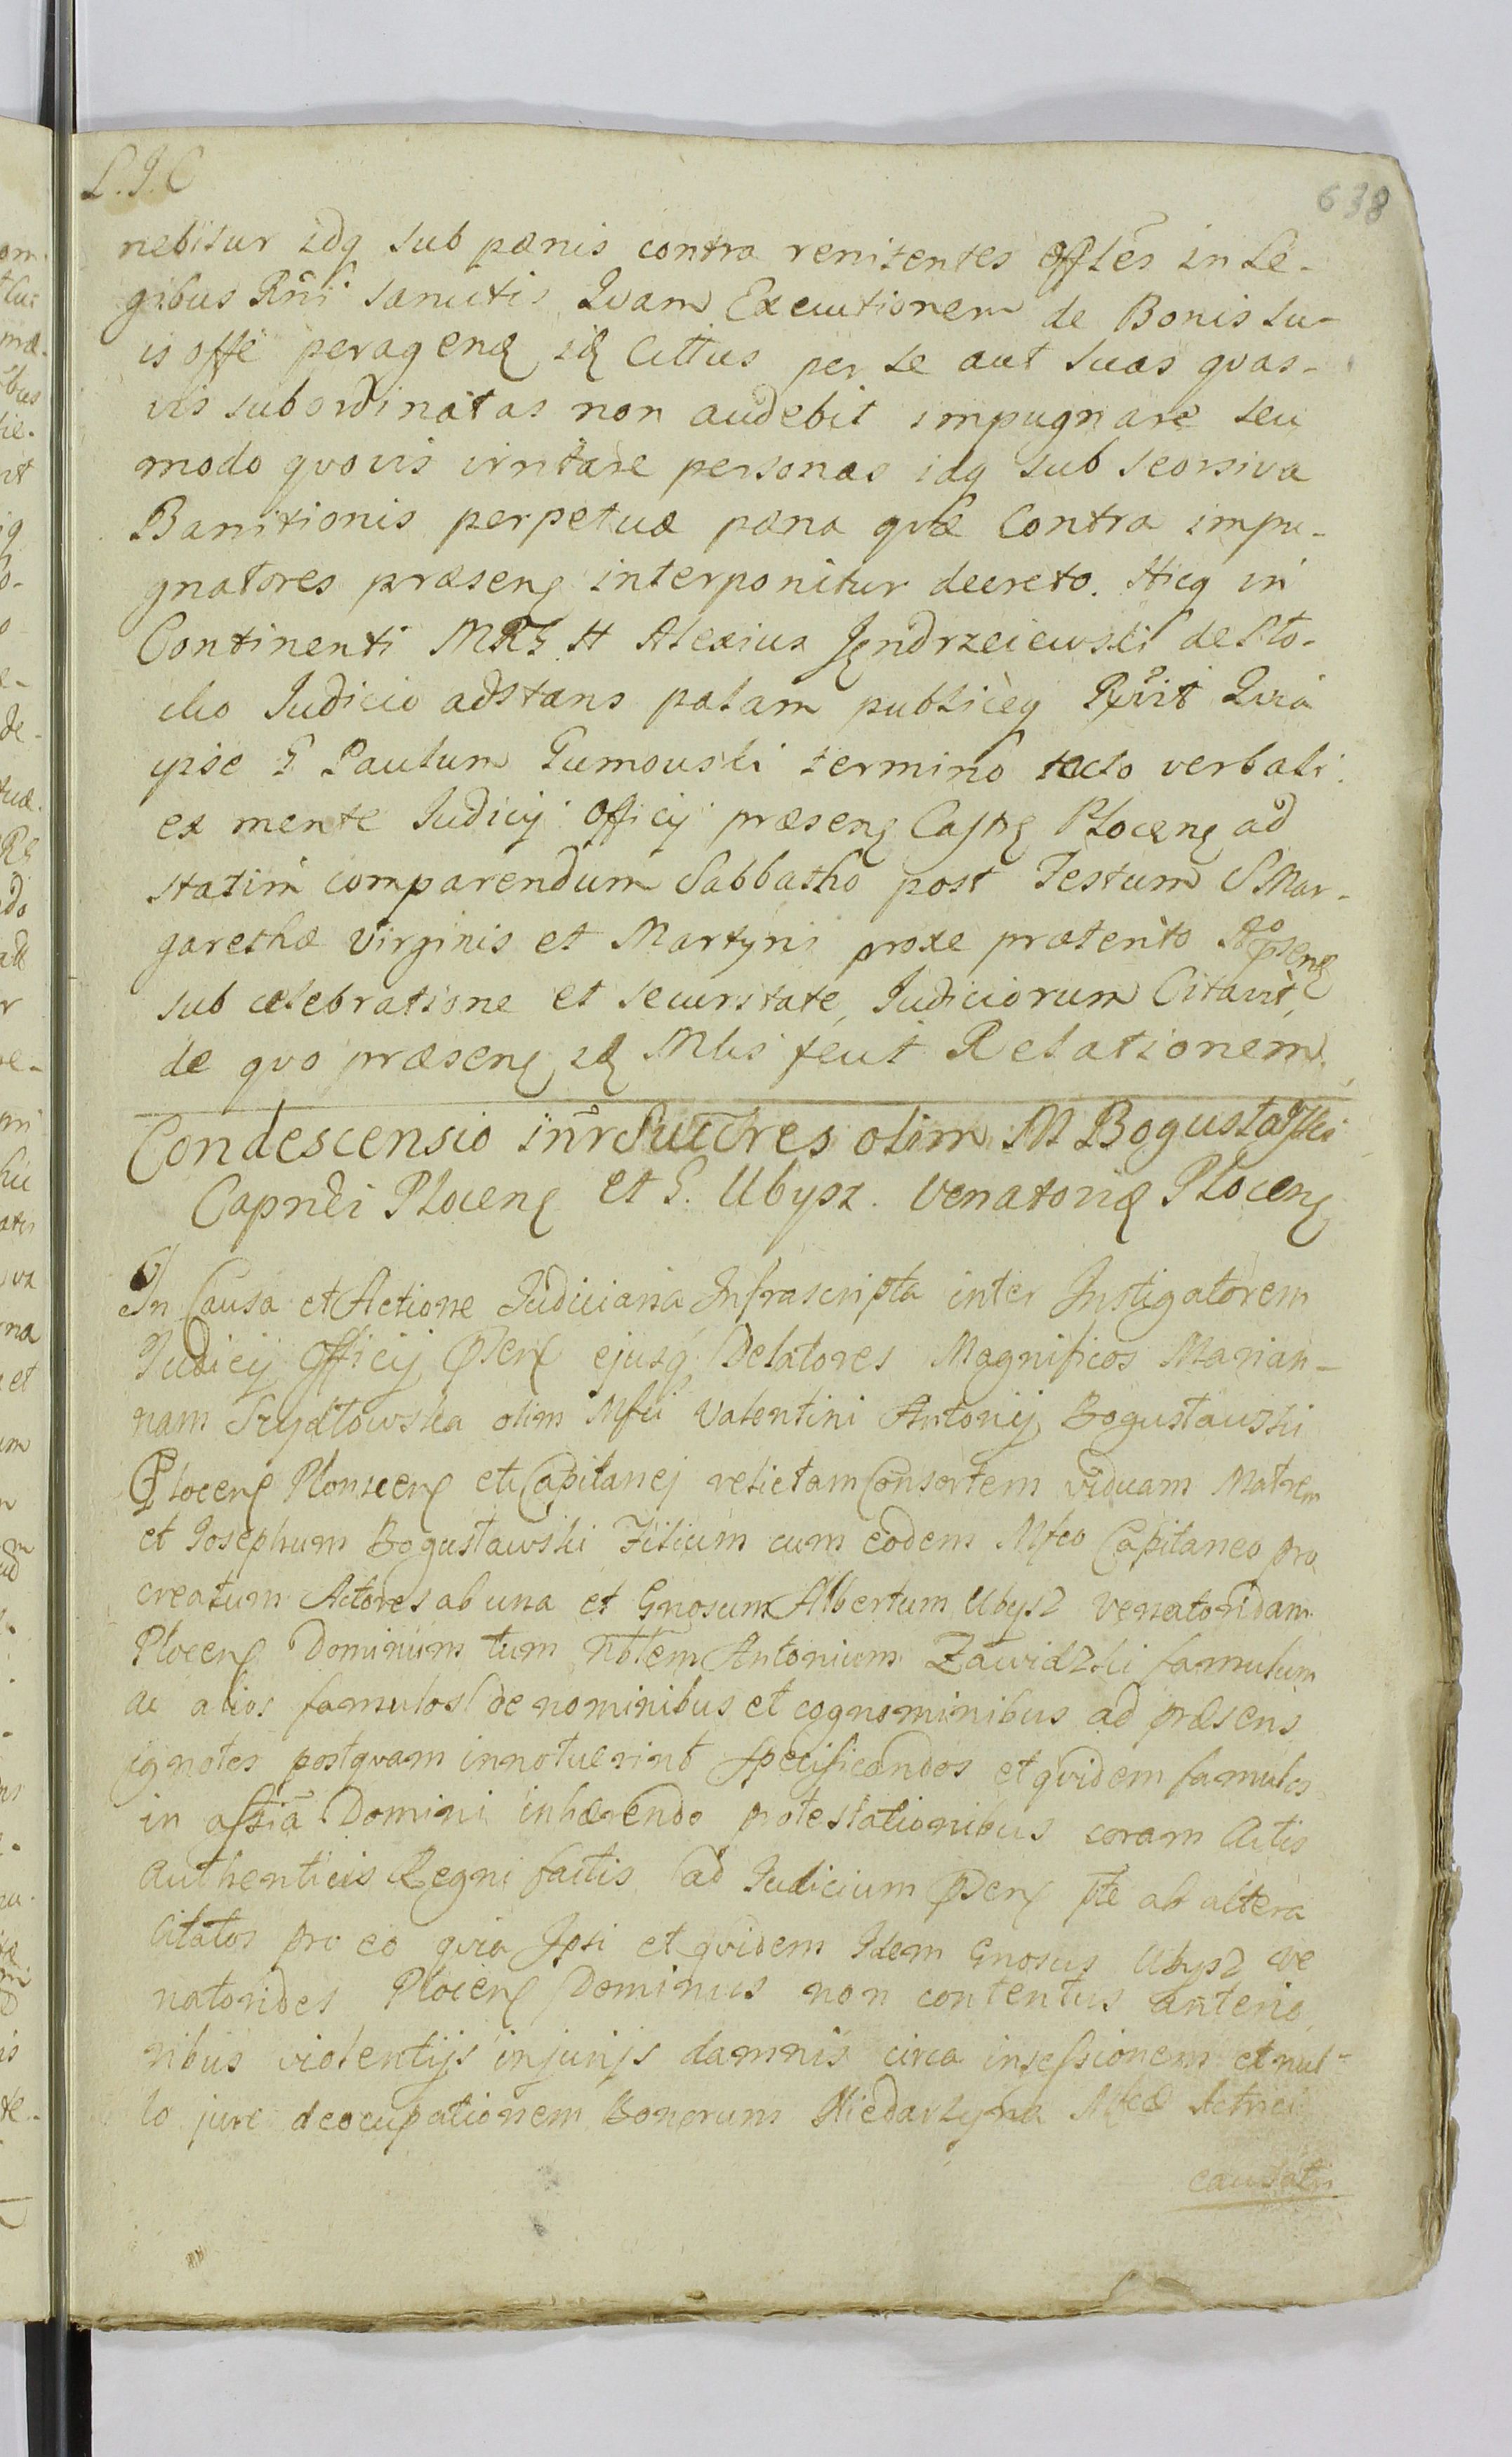 L. J. C
638
nebitur idq sub pœnis contra renitentes offles in Le-
gibus Rñi sancitis Quam Executionem de Bonis su-
is offe peragenꝫ idꝫ Cittus per se aut suas qvas-
vis subordinatas non audebit impugnare seu
modo qvovis irritare personas idq sub seorsiva
Banitionis perpetuæ pœna qvæ Contra impu-
gnatores præsenꝫ interponitur decreto. Hicq in
Continenti MRG H Alexius Jęndrzeiewski de Plo-
cko Judicio adstans palam publiceq Rvit Qvia
ipse G Paulum Gumouski termino tacto verbali
ex mente Judicij Officij præsenꝫ Castrꝫ Plocenꝫ ad
statim comparendum Sabbatho post Festum S Mar-
garethæ Virginis et Martyris proxe præterito Ao psenꝫ
sub celebratione et securitate Judiciorum Citavit,
de qvo præsenꝫ idꝫ Mlis fecit Relationem.
Condescensio inr Suctres olim M Bogusławski
Capnei Plocenꝫ et G. Ubysz. Venatoriꝫ Plocenꝫ
In Causa et Actione Judiciaria Infrascripta inter Instigatorem
Judicij Officij psenꝫ ejusq Delatores Magnificos Marian-
nam Szydłowska olim Mfici Valentini Antonij Bogusławski
Plocenꝫ Plonscenꝫ etc Capitanei relictam Consortem viduam Matrem
et Josephum Bogusławski Filium cum eodem Mfco Capitaneo pro
creatum Actores ab una et Gnosum Albertum Ubysz Venatoridam
Plocenꝫ Dominum tum Nblem Antonium Zawidzki famulum
ac alios famulos de nominibus et cognominibus ad præsens
ignotos postqvam innotuerint specificandos et qvidem famulos
in assia Domini inhærendo protestationibus coram Actis
Authenticis Regni factis ad Judicium psenꝫ pte ab altera
Citatos pro eo qvia Ipsi et qvidem Idem Gnosus Ubysz Ve
natorides Plocenꝫ Dominus non contentus anterio
ribus violentijs injurijs damnis circa insessionem et nul-
lo jure deocupationem Bonorum Niedarzyna Mfcæ Actrici
causatis